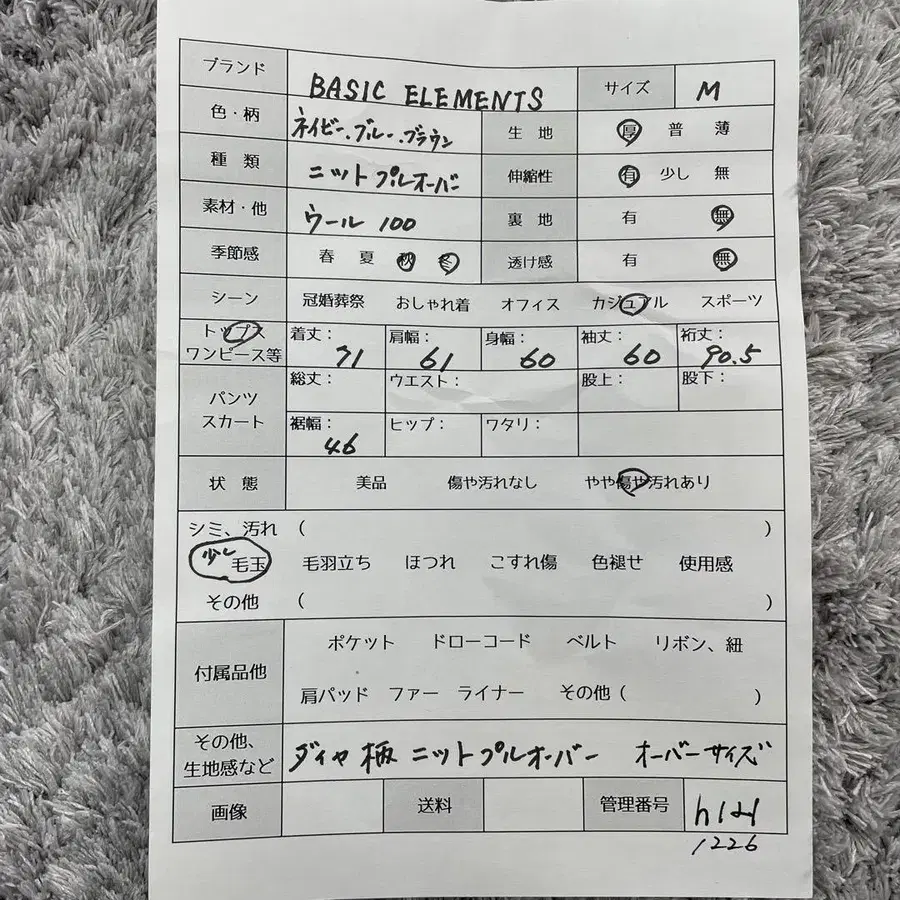 ブランド BASIC ELEMENTS サイズ M
色・柄 ネイビー、ブルー、ブラウン 生地 厚 普 薄
種類 ニットプルオーバー 伸縮性 有 少し 無
素材・他 ウール 100 裏地 有 無
季節感 春 夏 秋 冬 透け感 有 無
シーン 冠婚葬祭 おしゃれ着 オフィス カジュアル スポーツ
トップス ワンピース等 着丈: 71 肩幅: 61 身幅: 60 袖丈: 60 裄丈: 90.5
パンツ スカート 総丈: ウエスト: 股上: 股下:
裾幅: 46 ヒップ: ワタリ:
状態 美品 傷や汚れなし やや傷や汚れあり
シミ、汚れ ( )
少し 毛玉 毛羽立ち ほつれ こすれ傷 色褪せ 使用感
その他 ( )
付属品他 ポケット ドローコード ベルト リボン、紐
肩パッド ファー ライナー その他 ( )
その他、生地感など ダイヤ柄 ニットプルオーバー オーバーサイズ
画像 送料 管理番号
1226